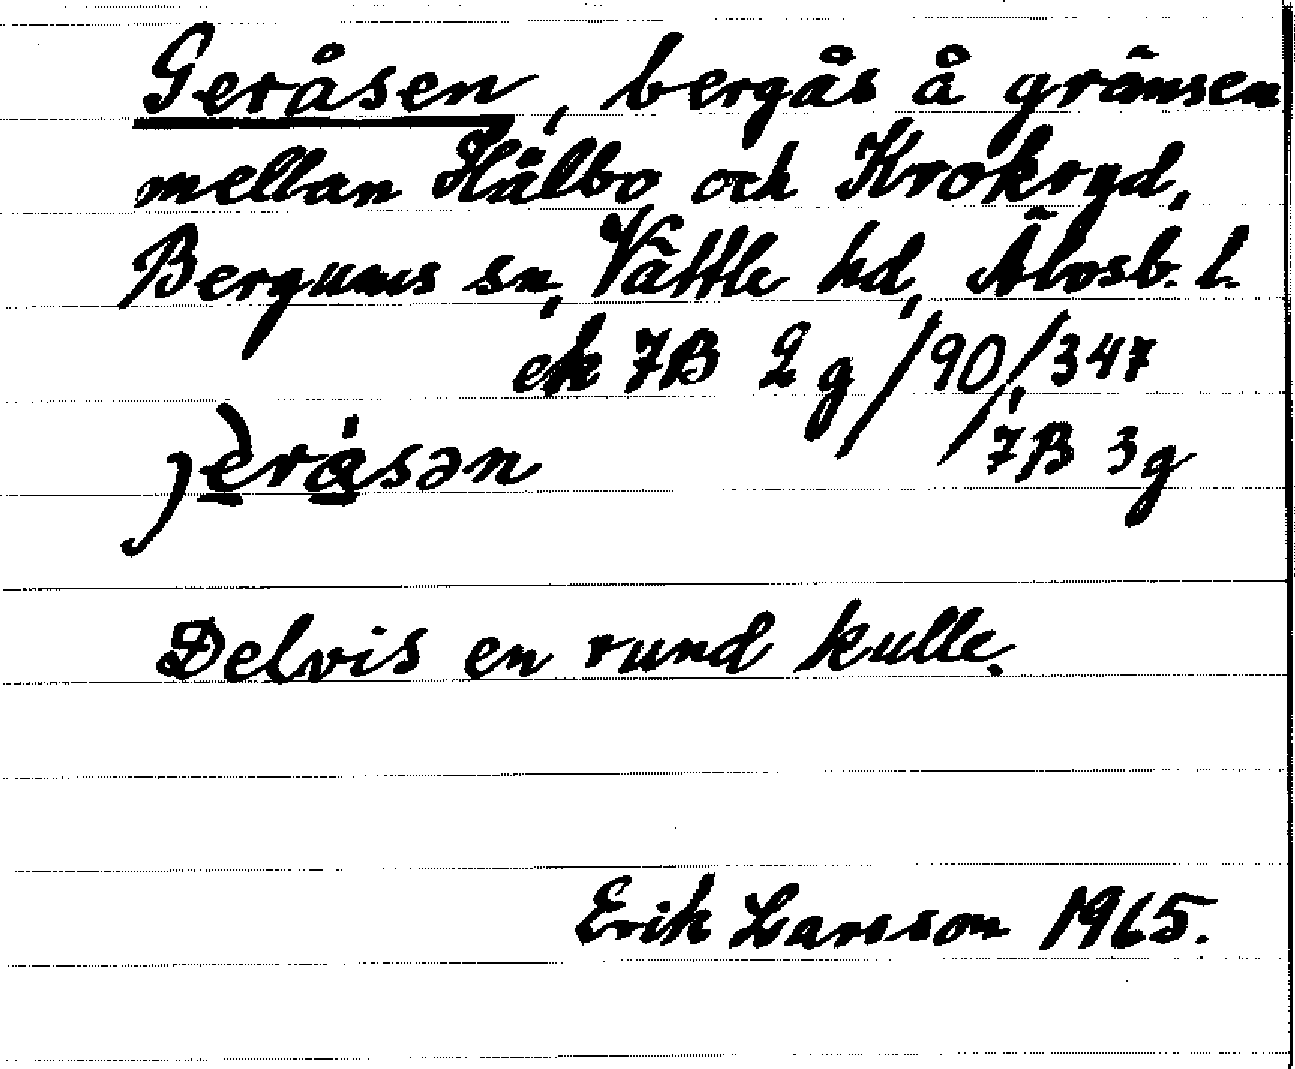 Geråsen, bergås å gränsen
mellan Hålbo och Krokryd,
Bergums sn, Vättle hd, Älvsb. l.
ek 7B 2g/90/347
/7B 3g
jeråsən
Delvis en rund kulle.
Erik Larsson 1965.